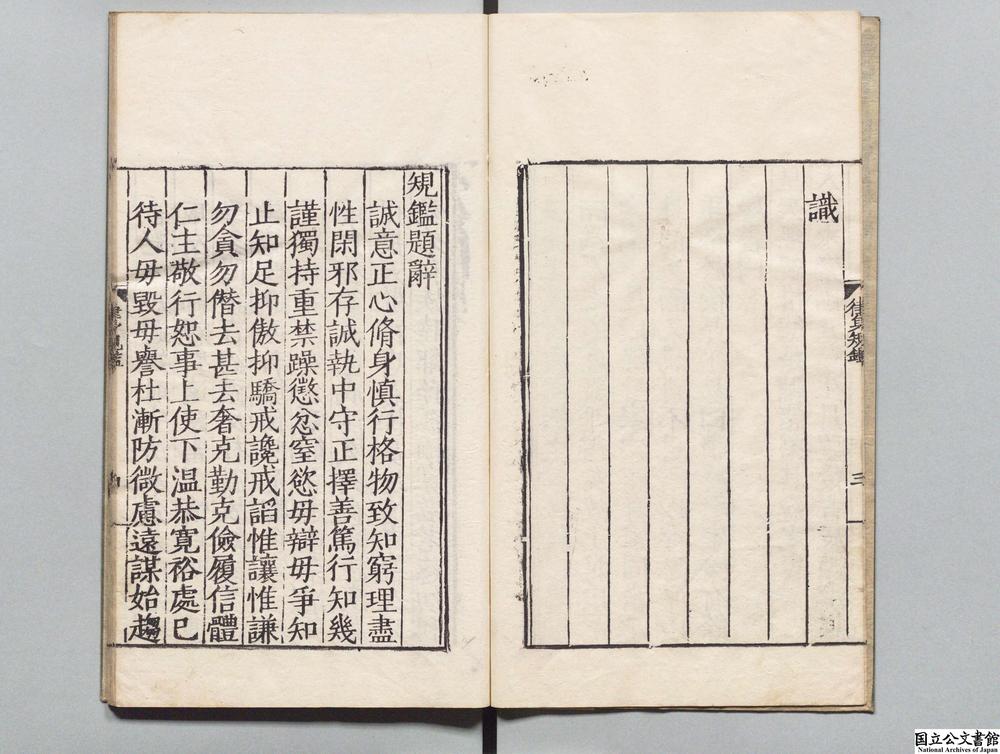 識
律身䂓鑑
三
䂓鑑題辭
誠意正心脩身慎行格物致知窮理盡
性閑邪存誠執中守正擇善篤行知幾
謹獨持重禁躁懲忿窒慾毋辯毋爭知
止知足抑傲抑驕戒讒戒謟惟讓惟謙
勿貪勿僭去甚去奢克勤克儉履信體
仁主敬行恕事上使下温恭寛裕處已
待人毋毀毋譽杜漸防微慮遠謀始趨
国立公文書館
National Archives of Japan